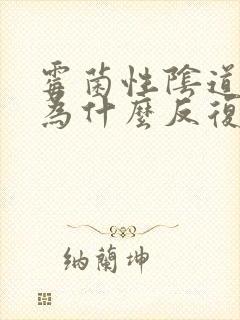 霉菌性陰道
為什麼反復
納蘭坤